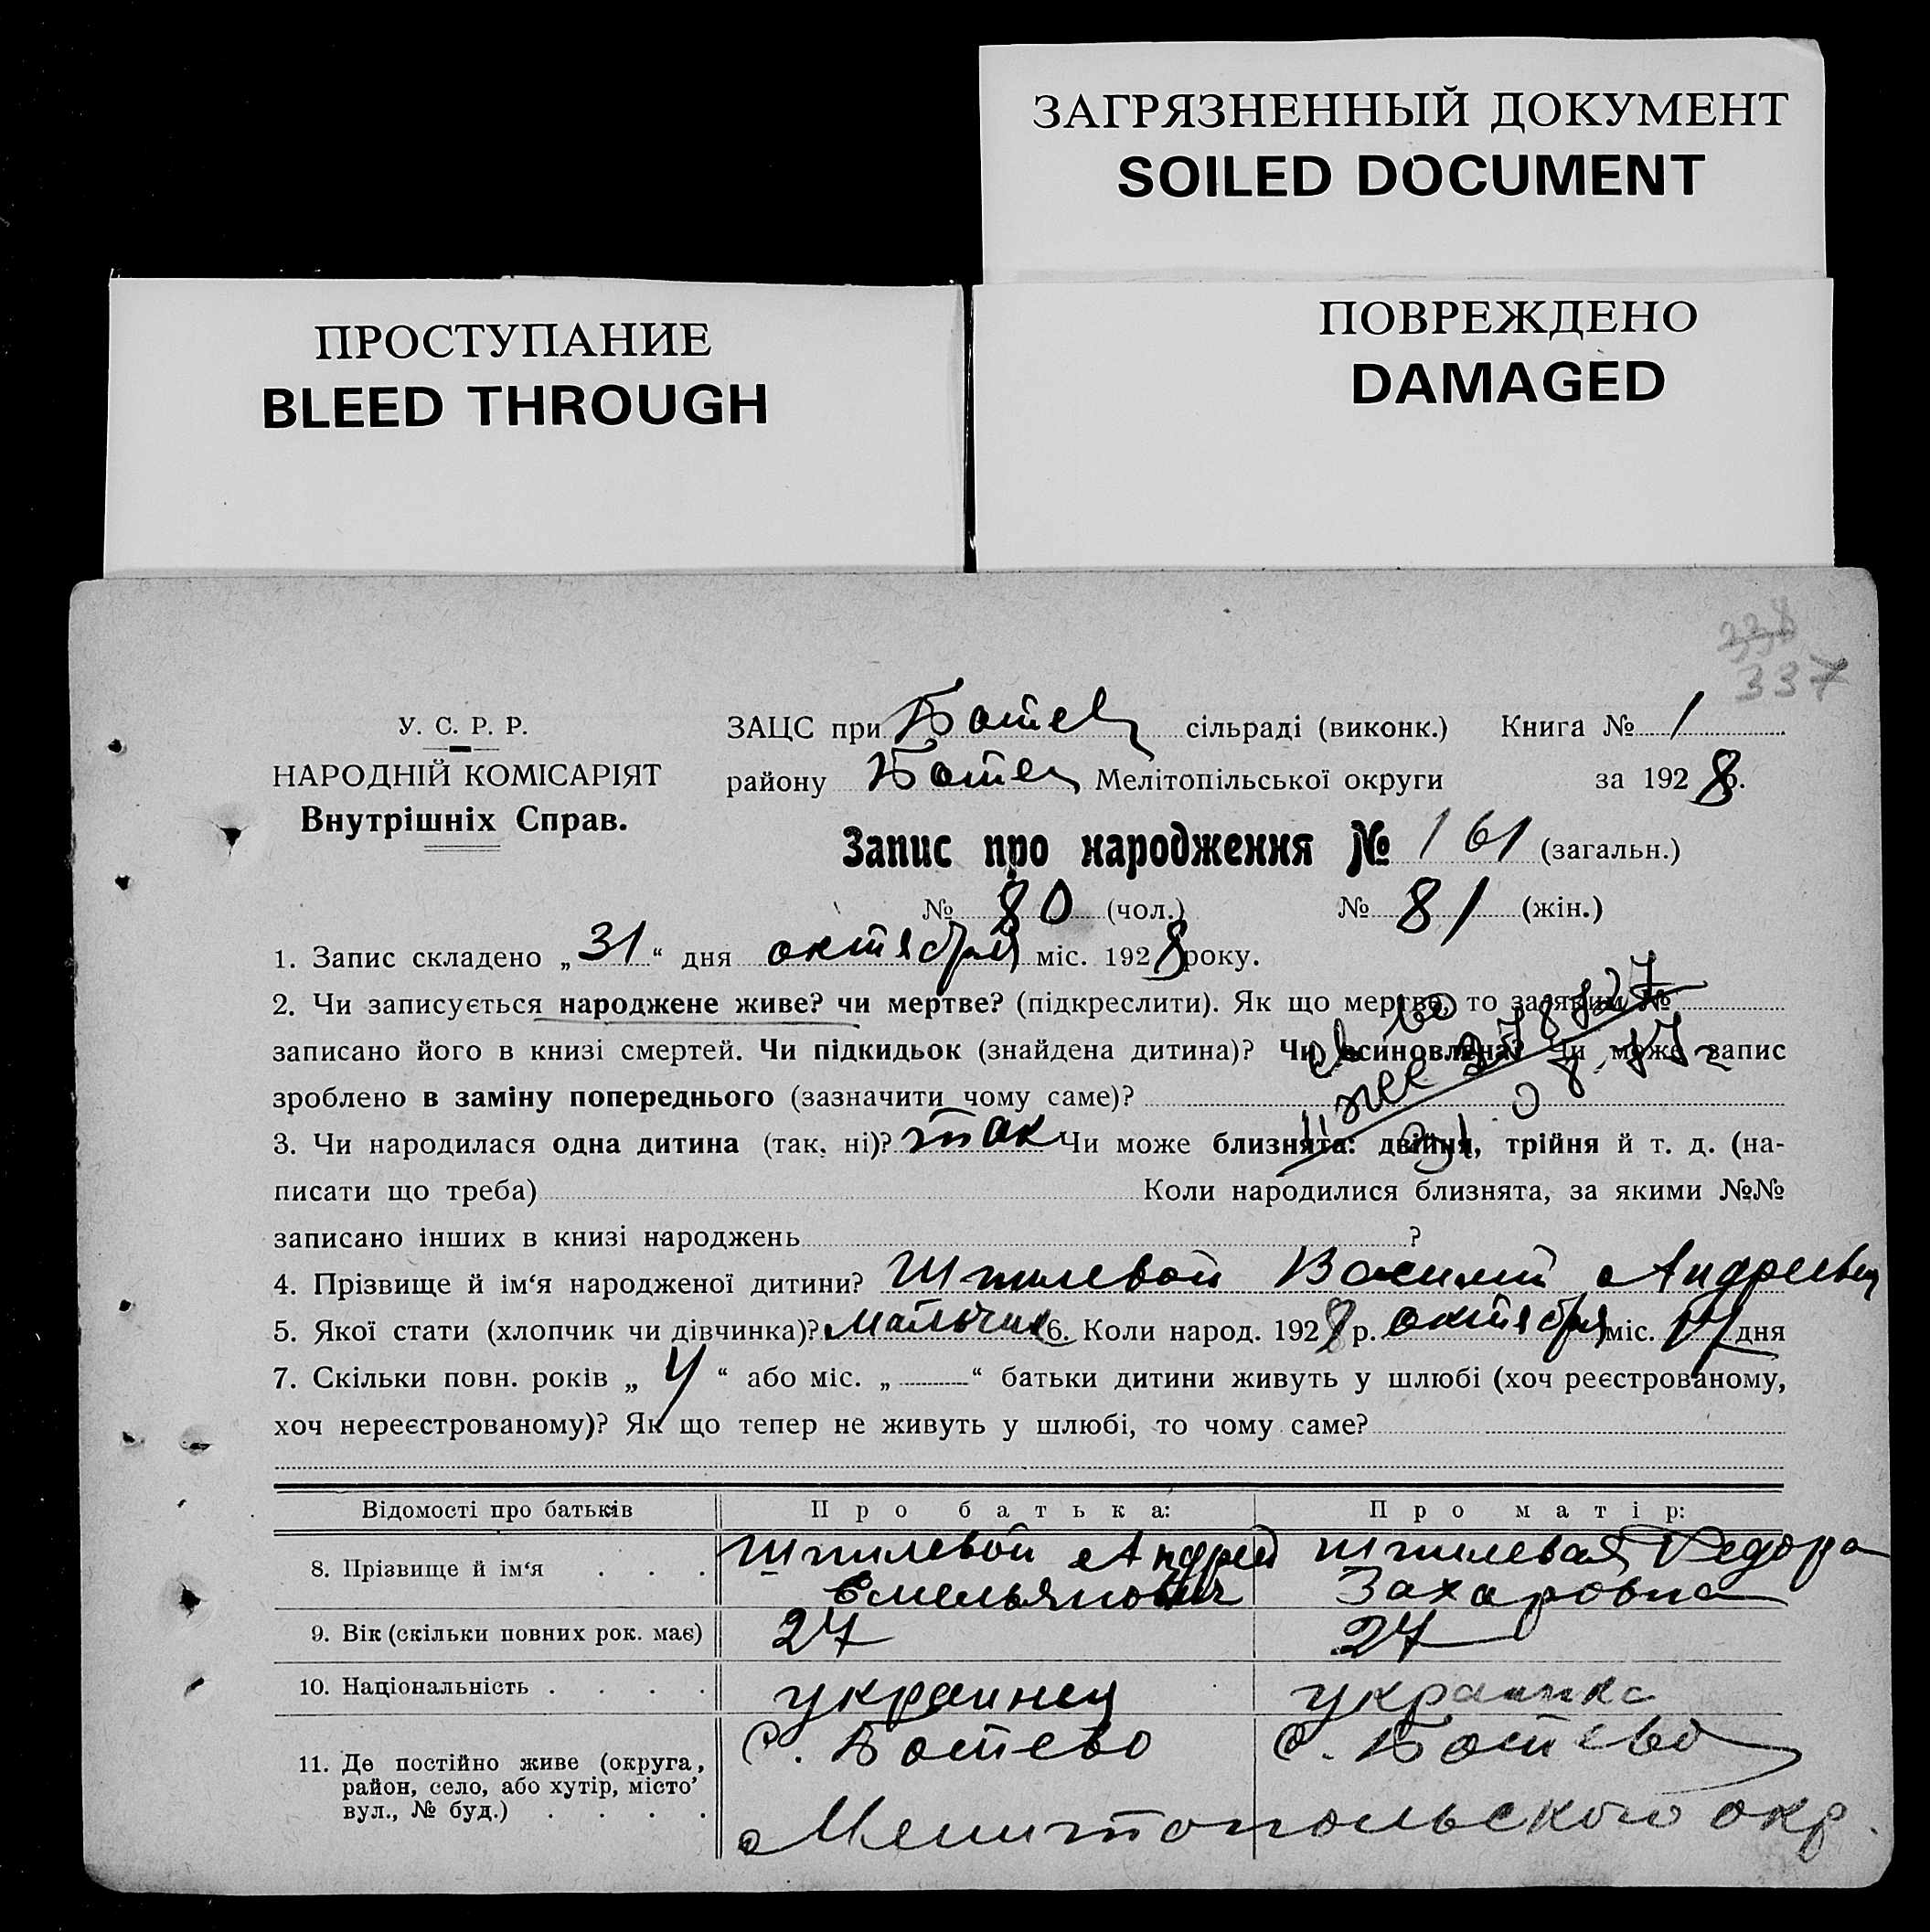 ЗАГРЯЗНЕННЫЙ ДОКУМЕНТ
SOILED DOCUMENT
ПРОСТУПАНИЕ
BLEED THROUGH
ПОВРЕЖДЕНО
DAMAGED
338
337
У. С. Р. Р.
НАРОДНІЙ КОМІСАРІЯТ
Внутрішніх Справ.
ЗАЦС при Ботев сільраді (виконк.) Книга № 1
району Ботев Мелітопільської округи за 1928 р.
Запис про народження № 161 (загальн.)
№ 80 (чол.) № 81 (жін.)
1. Запис складено „31“ дня октября міс. 1928 року.
2. Чи записується народжене живе? чи мертве? (підкреслити). Як що мертве, то за яким №
записано його в книзі смертей. Чи підкидьок (знайдена дитина)? Чи всиновлена? Чи може запис
зроблено в заміну попереднього (зазначити чому саме)?
3. Чи народилася одна дитина (так, ні)? так Чи може близнята: двійня, трійня й т. д. (на-
писати що треба) Коли народилися близнята, за якими №№
записано інших в книзі народжень ?
4. Прізвище й ім‘я народженої дитини? Шпилевой Василий Андреевич
5. Якої стати (хлопчик чи дівчинка)? мальчик 6. Коли народ. 1928 р. октября міс. дня
7. Скільки повн. років „4“ або міс. „—“ батьки дитини живуть у шлюбі (хоч реєстрованому,
хоч нереєстрованому)? Як що тепер не живуть у шлюбі, то чому саме?
Відомості про батьків Про батька: Про матір:
8. Прізвище й ім‘я . . . Шпилевой Андрей Емельянович Шпилевая Федора Захаровна
9. Вік (скільки повних рок. має) 27 27
10. Національність . . . . украинец украинка
11. Де постійно живе (округа, район, село, або хутір, місто’ вул., № буд.) . . . . с. Ботево с. Ботево
Мелитопольского окр.